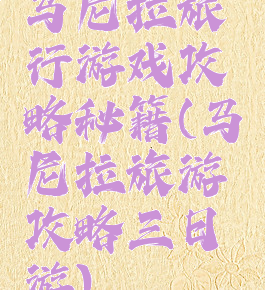 马尼拉旅
行游戏攻
略秘籍(马
尼拉旅游
攻略三日
游)